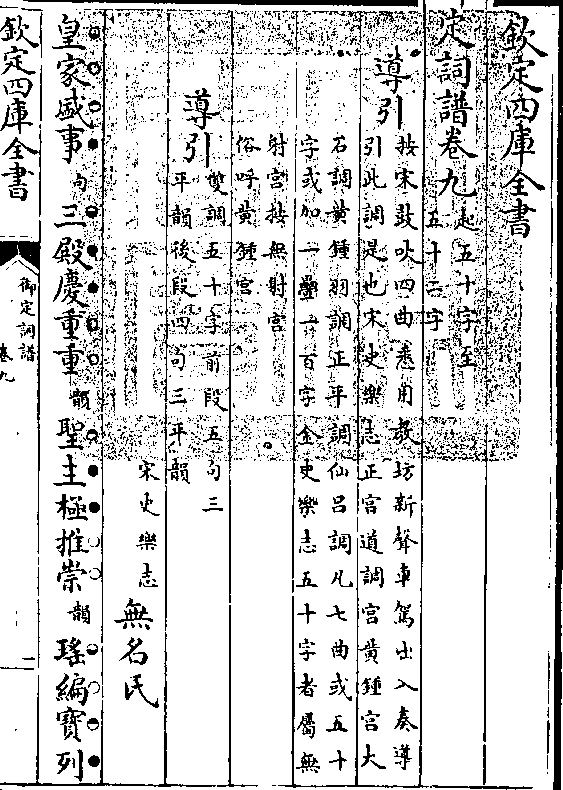 欽定四庫全書
定詞譜卷九
起五十字至
五十二字
導引
按宋鼓吹四曲悉用教坊新聲車駕出入奏導
引此調是也宋史樂志正宮道調宮黃鍾宮大
石調黃鍾羽調正平調仙呂調凡七曲或五十
字或加一疊一百字金史樂志五十字者屬無
射宮按無射宮
俗呼黃鍾宮
導引
雙調五十字前段五句三
平韻後段四句三平韻
宋史樂志 無名氏
皇家盛事句三殿慶重重韻聖主極推崇韻瑤編寶列
欽定四庫全書
御定詞譜
卷九
一